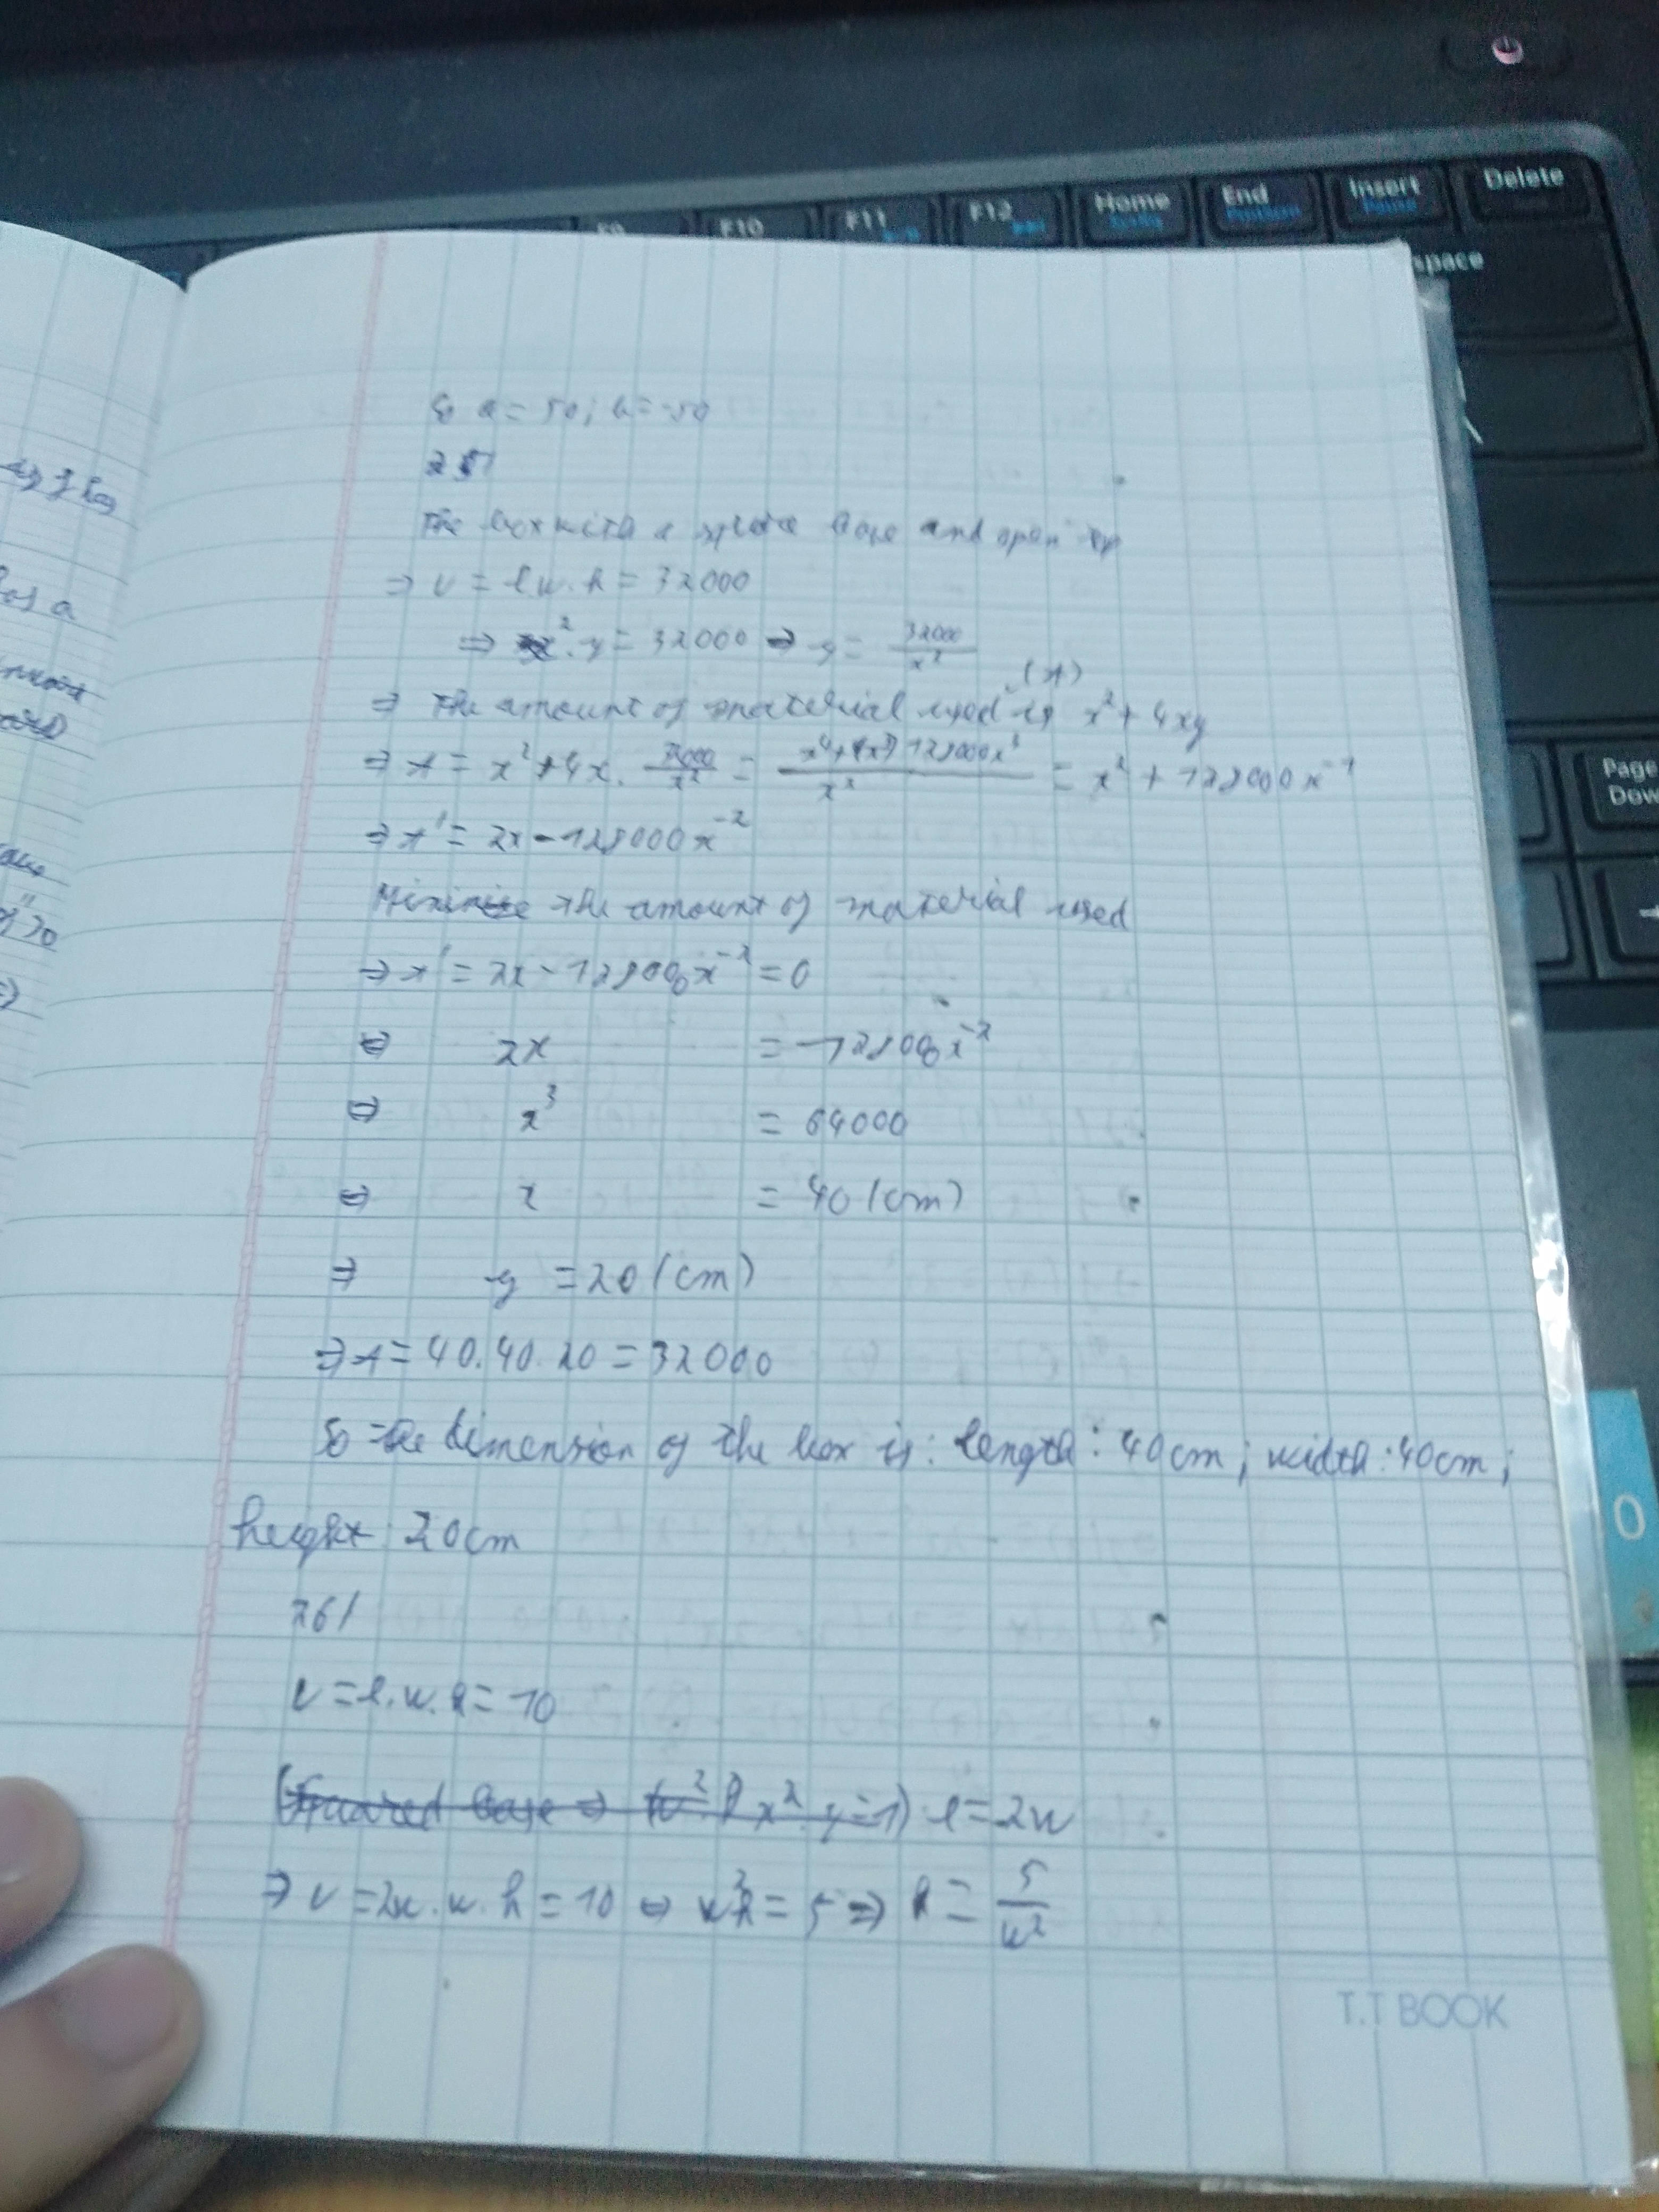 F9 F10 F11 F12 Home End Insert Delete
Pause
space
So a = 50; b = -50
25/
The box with a square base and open top
⇒ V = l.w.h = 32000
⇒ x². y = 32000 ⇒ y = 32000/x²
⇒ The amount of material used (A) is x² + 4xy
⇒ A = x² + 4x. 32000/x² = = x² + 128000x⁻¹
⇒ A' = 2x - 128000x⁻²
Minimize the amount of material used
⇒ A' = 2x - 128000x⁻² = 0
⇔ 2x = 128000x⁻²
⇔ x³ = 64000
⇔ x = 40 (cm)
⇒ y = 20 (cm)
⇒ A = 40.40.20 = 32000
So the dimension of the box is: length: 40cm; width: 40cm;
height: 20cm
26/
V = l.w.h = 10
(Squared base ⇒ x² y = 1) l = 2w
⇒ V = 2w.w.h = 10 ⇔ w²h = 5 ⇒ h = 5/w²
T.T BOOK
Page
Down
0